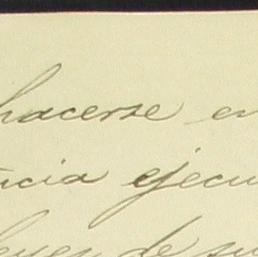 hacerse en
ncia ejecu
leyes de su